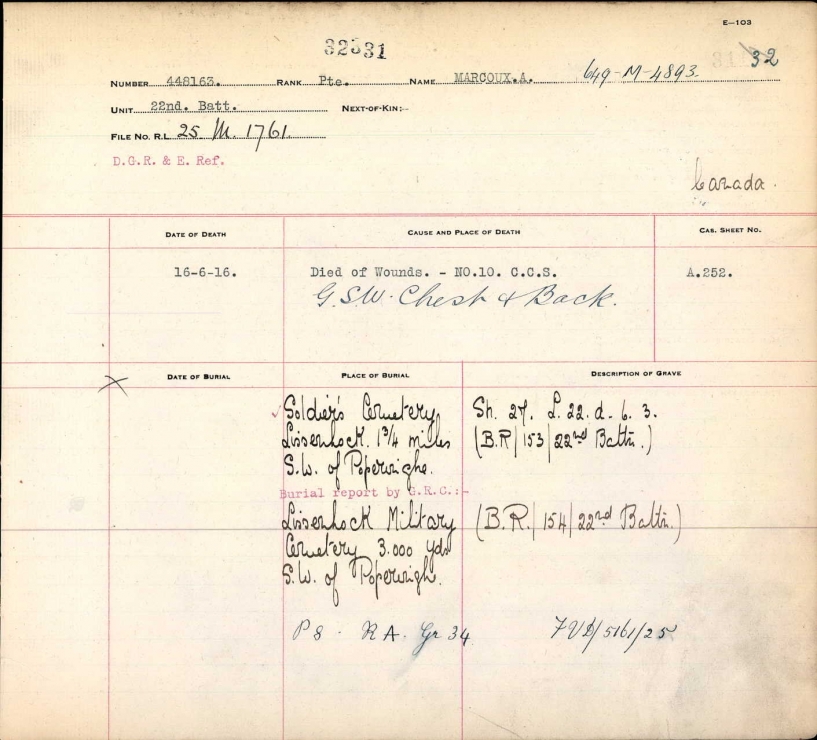 E—103
32531
32
NUMBER 448163. RANK Pte. NAME MARCOUX.A. 649-M-4893.
UNIT 22nd. Batt. NEXT-OF-KIN:—
FILE NO. R.L. 25. M. 1761.
D.G.R. & E. Ref.
Canada.
DATE OF DEATH CAUSE AND PLACE OF DEATH CAS. SHEET NO.
16-6-16. Died of Wounds. - NO.10. C.C.S. A.252.
G.S.W. Chest & Back.
DATE OF BURIAL PLACE OF BURIAL DESCRIPTION OF GRAVE
Soldier's Cemetery, Sh. 27. L. 22. d. 6. 3.
Lissenhock. 1¾ miles (B.R/153/22nd Battn.)
S.W. of Poperinghe.
Burial report by G.R.C.:-
Lissenhock Military (B.R./154/22nd Battn.)
Cemetery 3.000 yds
S.W. of Poperingh.
P 8. R A. Gr 34 /5161/25